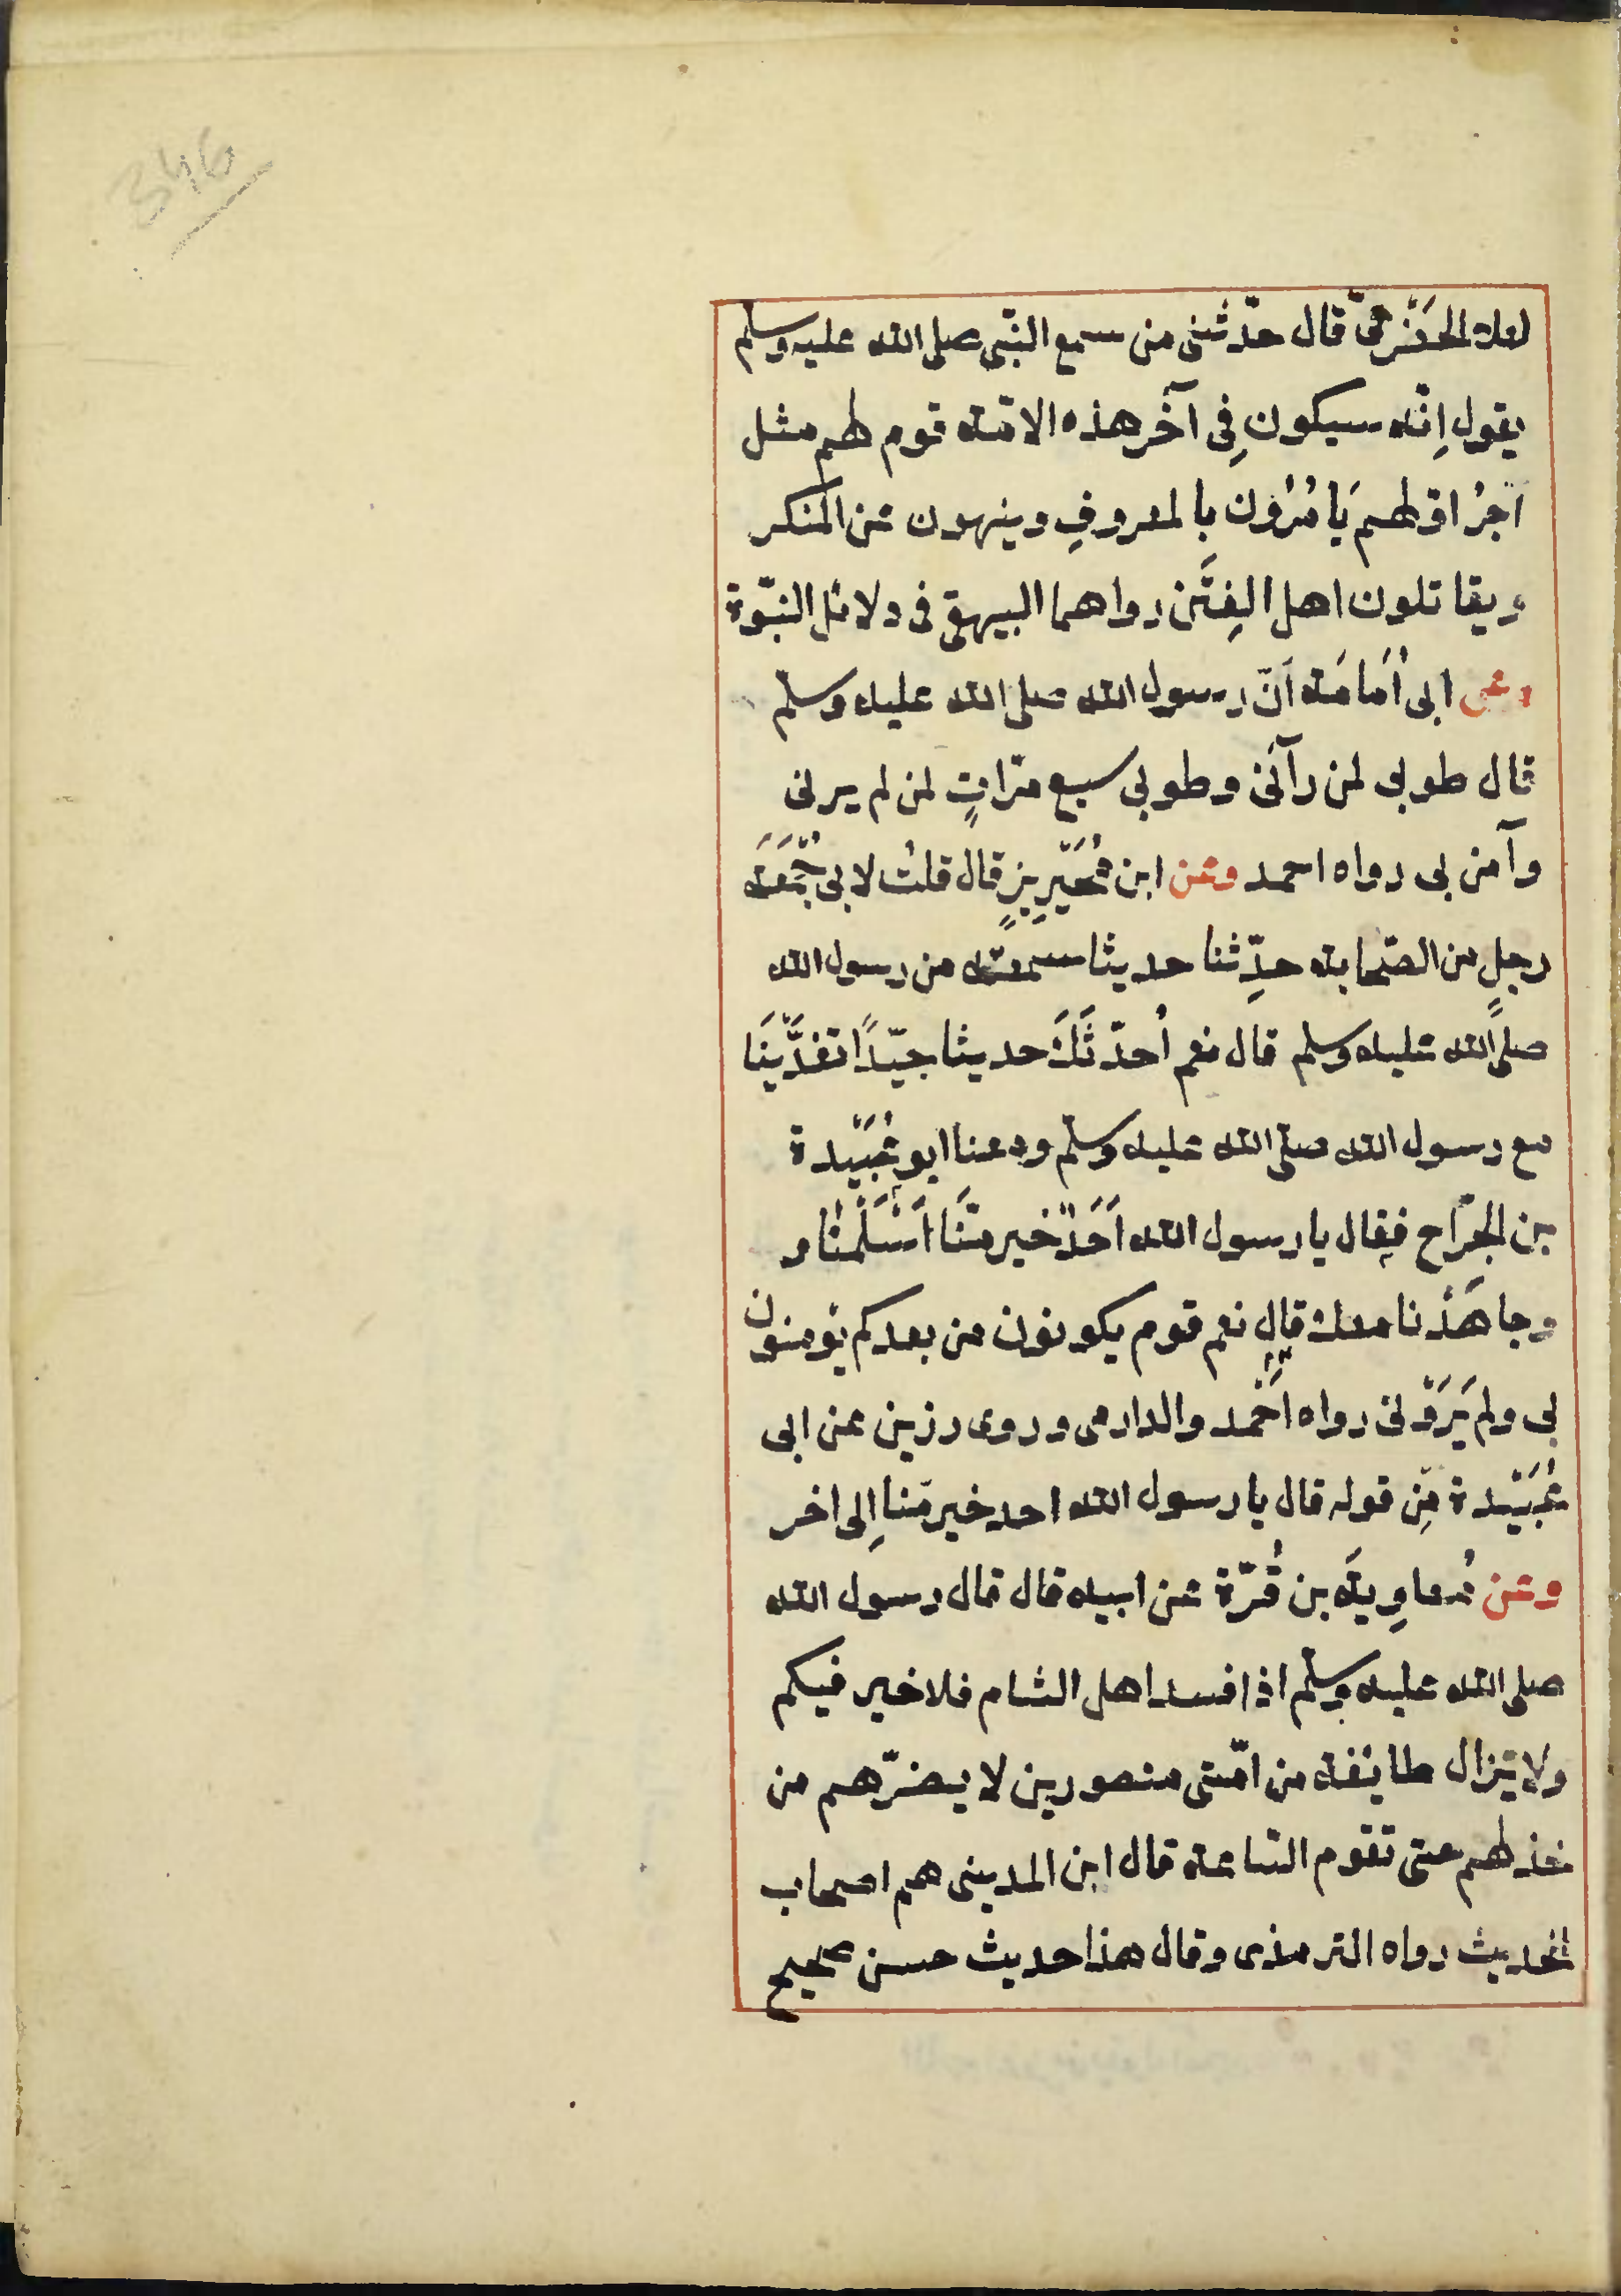 346
لعلاء الحَضْرَمىّ قال حدّثنى من سمع النّبى صلى الله عليه وسلم
يقول اِنّه سيكون فِى آخر هذه الامّة قوم لهم مثل
اَجرُ اوّلهم يَامُرُوْن بِالمعروفِ وينهون عن المنكر
ويقاتلون اهل الفِتَن رواهما البيهقى فى دلائل النبّوة
وعن ابى اُمَامَة اَنّ رسول الله صلى الله عليه وسلم
قال طوبى لمن رآنى وطوبى سبع مرّاتٍ لمن لم يرنى
وآمن بى رواه احمد وعن ابن مُحَيْرِيزٍ قال قلتُ لابى جُمُعَة
رجلٍ من الصّحابة حدِّثنا حديثا سمعته من رسول الله
صلى الله عليه وسلم قال نعم اُحدّثَكَ حديثا جيّدًا تغدَّيْنَا
مع رسول الله صلى الله عليه وسلم ومعنا ابو عُبَيْدة
بن الجرّاح فقال يا رسول الله اَحَدٌ خير منَّا اَسْلَمْنا و
وجاهَدْنا معك قال نعم قوم يكونون من بعدكم يؤمنون
بى ولم يَرَوْنى رواه اَحْمد والدارمى وروى رزين عن ابى
عُبَيْدة مِّن قوله قال يا رسول الله احد خير مّنا اِلى اخر
وعن مُعاوِيَة بن قُرّة عن ابيه قال قال رسول الله
صلى الله عليه وسلم اذا فسد اهل الشام فلا خير فيكم
ولا يزال طايفة من امّتى منصورين لا يضرّهم من
خذلهم حتى تقوم السّاعة قال ابن المدينى هم اصحاب
الحديث رواه الترمذى وقال هذا حديث حسن صحيح